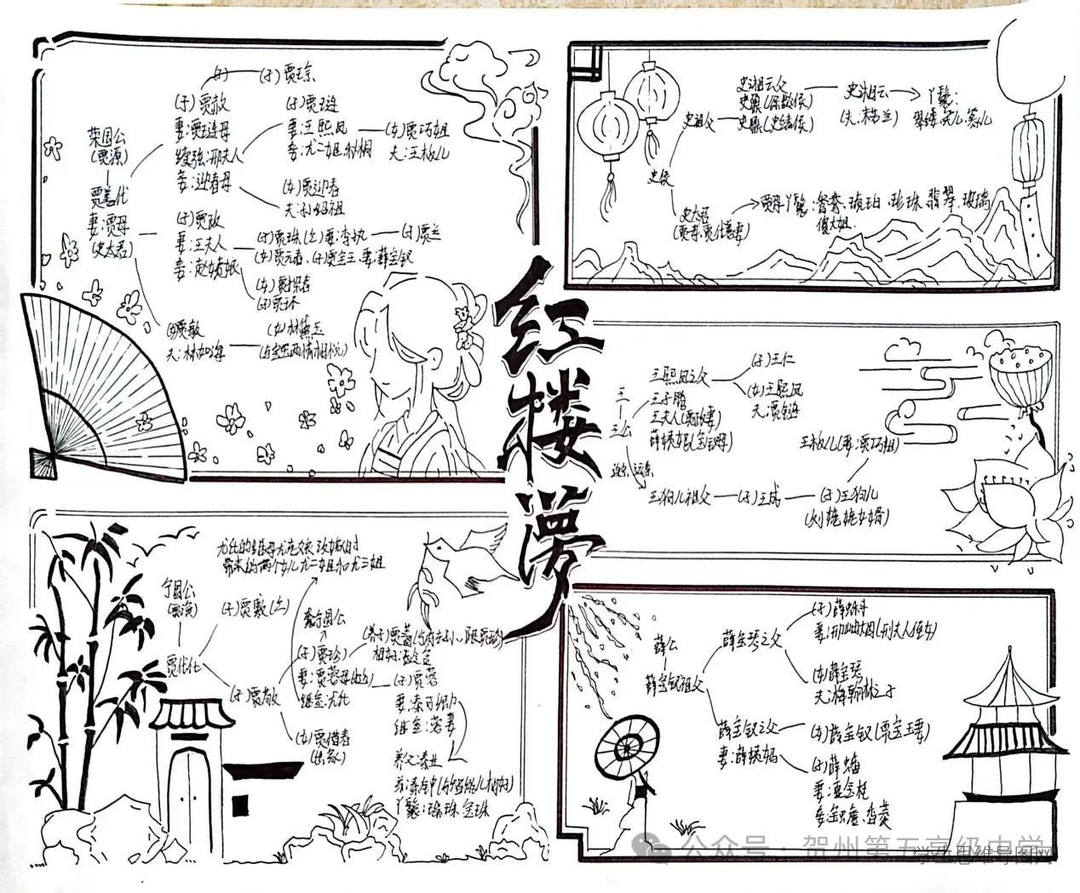 红楼梦
荣国公
(贾源)
贾善代
妻:贾母
(史太君)
(子)贾琮
(子)贾赦
妻:贾琏母
续弦:邢夫人
妾:迎春母
(子)贾琏
妻:王熙凤
妾:尤二姐、秋桐
(女)贾巧姐
夫:王板儿
(女)贾迎春
夫:孙绍祖
(子)贾政
妻:王夫人
妾:赵姨娘
(子)贾珠(亡)妻:李纨
(子)贾兰
(女)贾元春、(子)贾宝玉、妻:薛宝钗
(女)贾探春
(子)贾环
(女)贾敏
夫:林如海
(女)林黛玉
(与宝玉两情相悦)
史侯
史祖父
史湘云父
史鼐(保龄侯)
史鼎(史靖侯)
史湘云
(夫:卫若兰)
丫鬟:
翠缕、
史太君
(贾母,贾代善妻)
贾母丫鬟:鸳鸯、琥珀、珍珠、翡翠、玻璃
傻大姐
王
王公
王熙凤之父
王子腾
王夫人(贾政妻)
薛姨妈(宝钗母)
(子)王仁
(女)王熙凤
夫:贾琏
连宗
王狗儿祖父
(子)王成
(子)王狗儿
(刘姥姥女婿)
王板儿(妻:贾巧姐)
宁国公
(贾演)
贾代化
(子)贾敷(亡)
(子)贾敬
尤氏的继母尤老娘
带来的两个女儿尤二姐和尤三姐
(子)贾珍
妻:贾蓉母
继室:尤氏
(女)贾惜春
(出家)
(子)贾蓉
妻:秦可卿
继室:蓉妻
养父:秦业
弟:秦钟
丫鬟:瑞珠、宝珠
薛公
薛宝钗祖父
薛宝琴之父
(子)薛蝌
妻:邢岫烟(邢夫人侄女)
(女)薛宝琴
夫:梅翰林之子
薛宝钗之父
妻:薛姨妈
(女)薛宝钗(贾宝玉妻)
(子)薛蟠
妻:夏金桂
妾:宝蟾、香菱
公众号·贺州第五高级中学